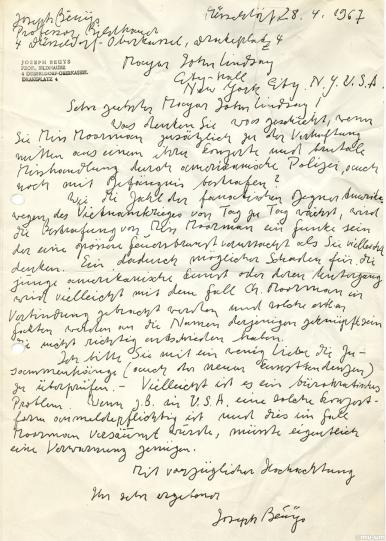 Joseph Beuys
Professor Bildhauer
4 Düsseldorf-Oberkassel, Drakeplatz 4
Düsseldorf 28. 4. 1967
JOSEPH BEUYS
PROF. BILDHAUER
4 DÜSSELDORF-OBERKASSEL
DRAKEPLATZ 4
Mayor John Lindsay
City-Hall
New York City. N.Y. U.S.A.
Sehr geehrter Mayor John Lindsay!
Was denken Sie was geschieht, wenn
Sie Miss Moorman zusätzlich zu der Verhaftung
mitten aus einem ihrer Konzerte und
Misshandlung durch amerikanische Polizei, auch
noch mit Gefängnis bestrafen?
Wie die Zahl der fanatischen Gegner Amerikas
wegen des Vietnamkrieges von Tag zu Tag wächst, wird
die Bestrafung von Miss Moorman ein Funke sein
der eine grössere Feuerbrunst verursacht als Sie vielleicht
denken. Ein dadurch möglicher Schaden für die
junge amerikanische Kunst oder deren Untergang
wird vielleicht mit dem Fall Ch. Moorman in
Verbindung gebracht werden und solche
Fakten werden an die Namen derjenigen geknüpft sein
die nicht richtig entschieden haben.
Ich bitte Sie mit ein wenig Liebe die Zu-
sammenhänge (auch der neuen Kunsttendenzen)
zu überprüfen. - Vielleicht ist es ein bürokratisches
Problem. Wenn z.B. in U.S.A. eine solche Konzert-
form anmeldepflichtig ist und dies im Fall
Moorman versäumt wurde, müsste eigentlich
eine Verwarnung genügen.
Mit vorzüglicher Hochachtung
Ihr sehr ergebener
Joseph Beuys